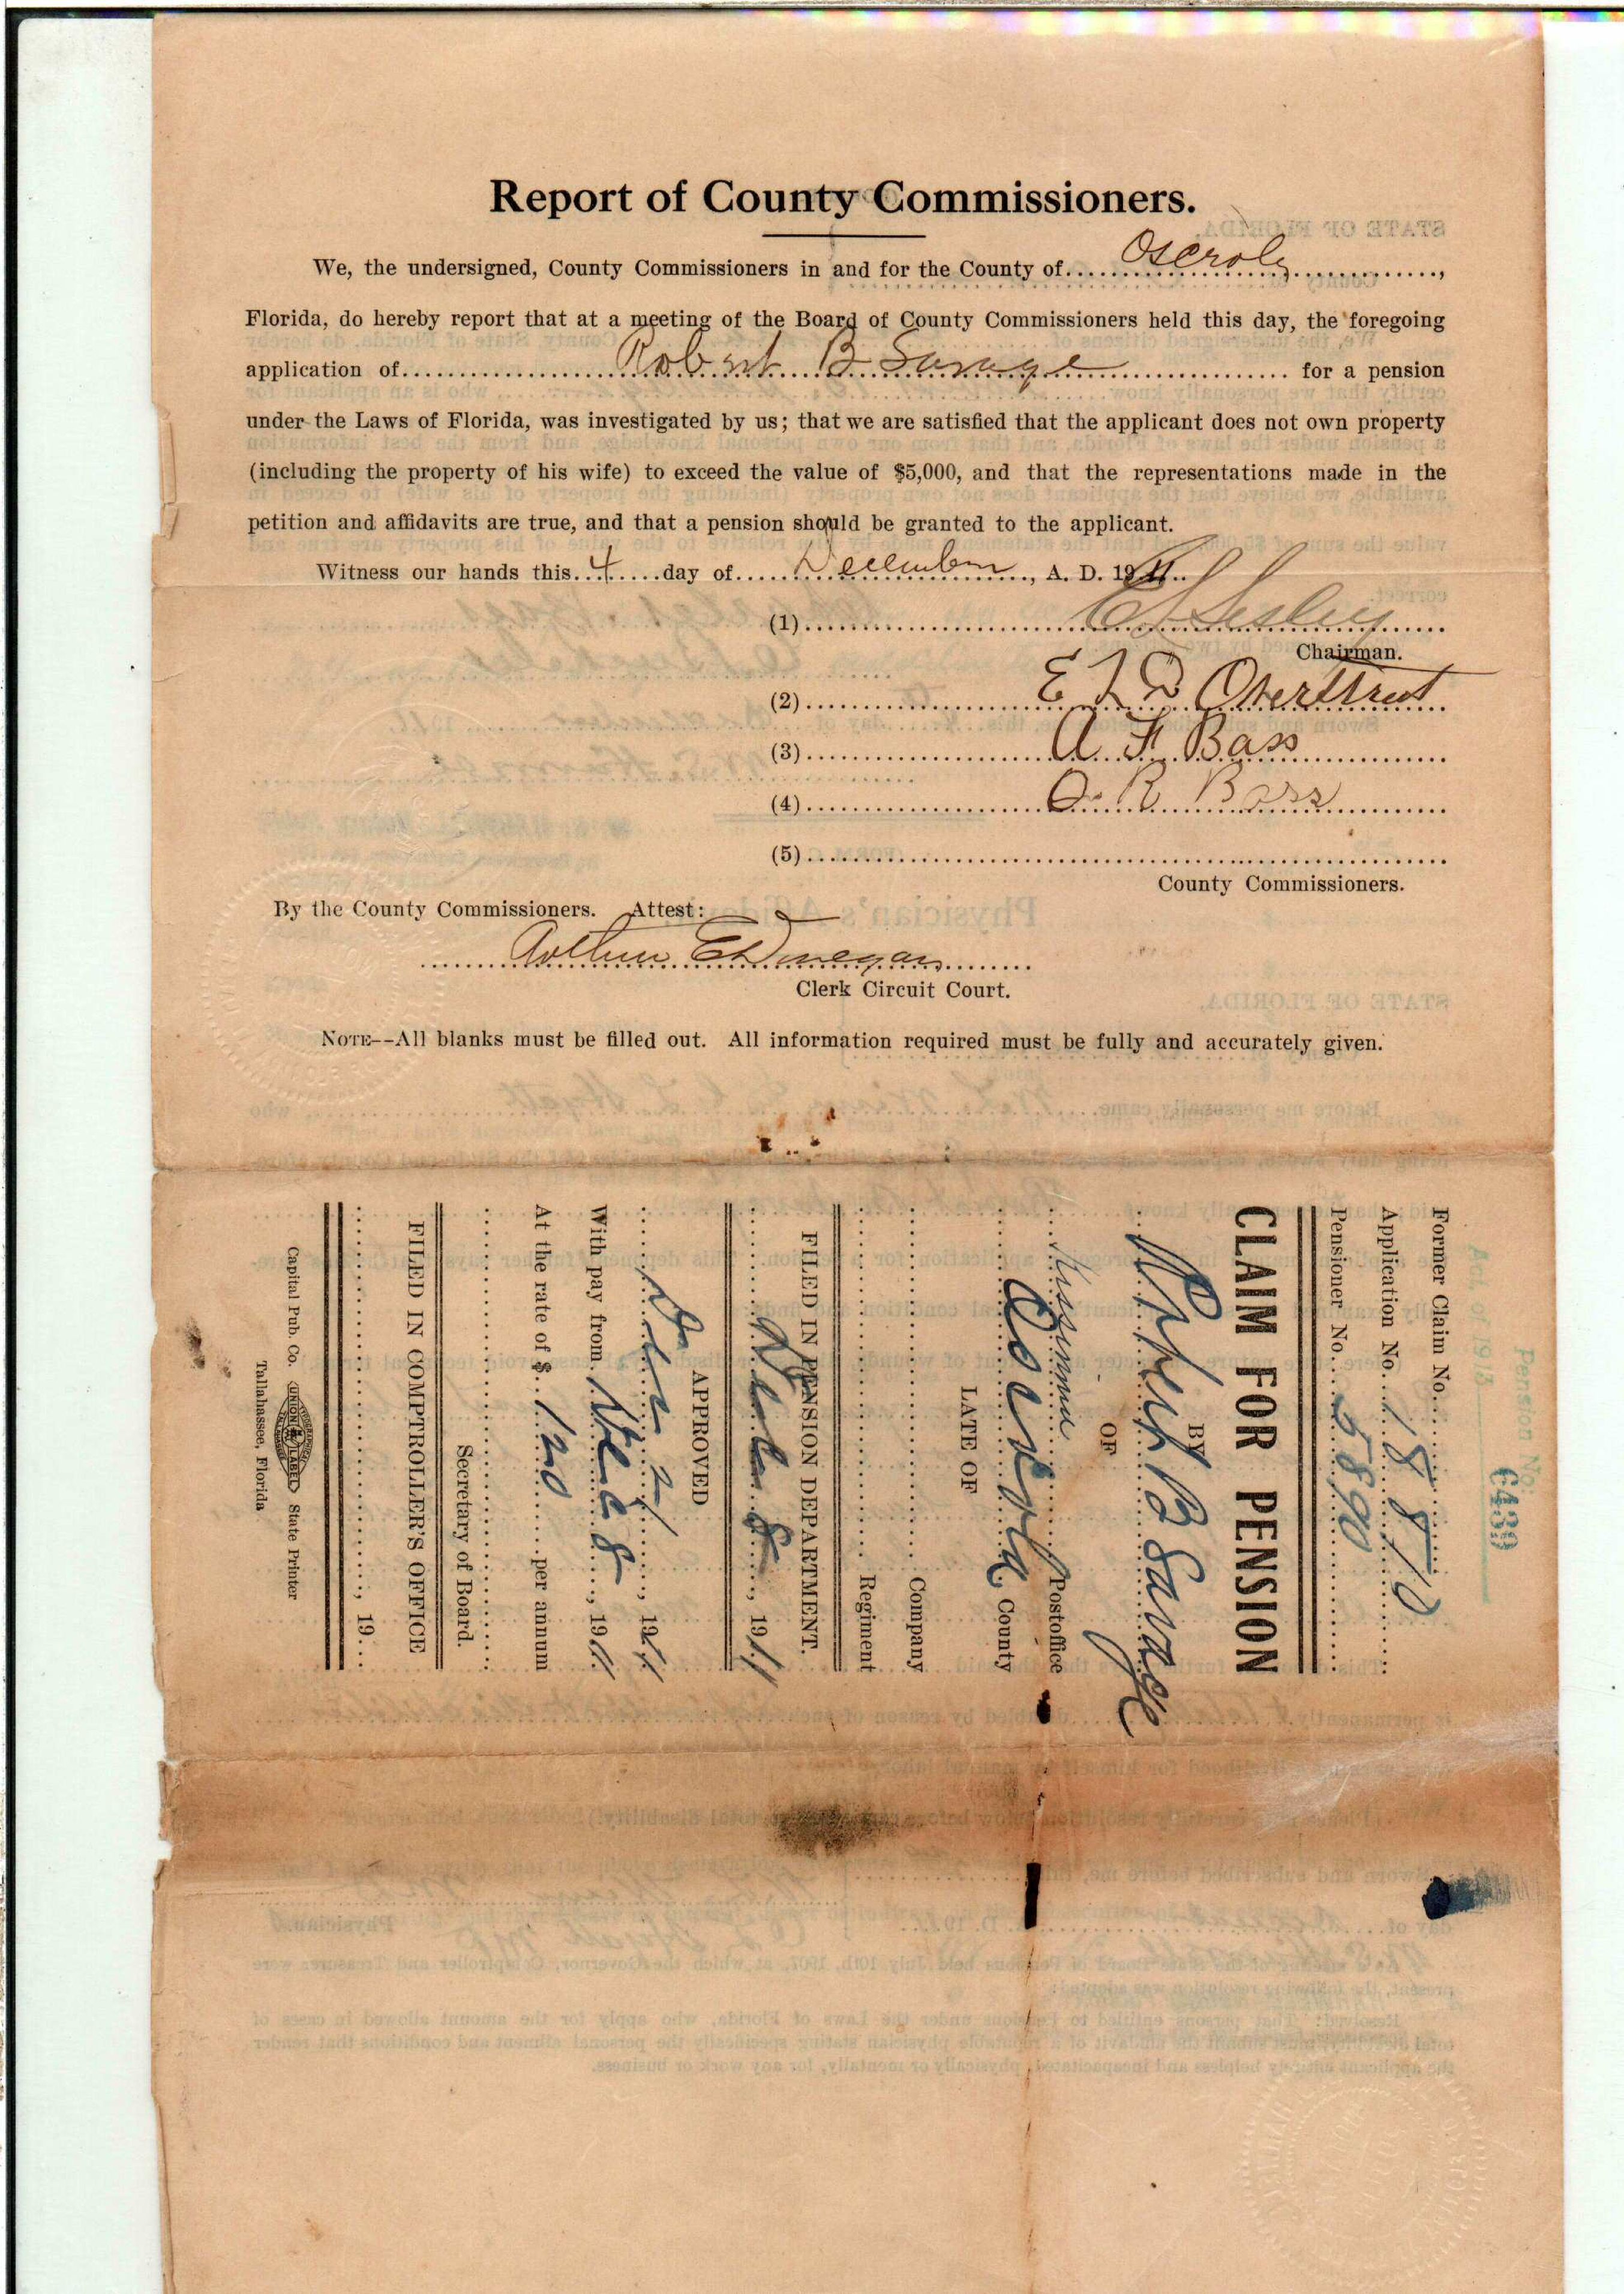 Report of County Commissioners.
We, the undersigned, County Commissioners in and for the County of Osceola,
Florida, do hereby report that at a meeting of the Board of County Commissioners held this day, the foregoing
application of Robert B Savage for a pension
under the Laws of Florida, was investigated by us; that we are satisfied that the applicant does not own property
(including the property of his wife) to exceed the value of $5,000, and that the representations made in the
petition and affidavits are true, and that a pension should be granted to the applicant.
Witness our hands this 4 day of December, A. D. 1911.
(1) Lesley
Chairman.
(2) E L D Overstreet
(3) A F Bass
(4) O R Bass
(5)
County Commissioners.
By the County Commissioners. Attest:
Arthur E Donegan
Clerk Circuit Court.
NOTE--All blanks must be filled out. All information required must be fully and accurately given.
Act of 1913
Pension No. 6439
Former Claim No.
Application No. 18810
Pensioner No. 5890
CLAIM FOR PENSION
BY
Robert B Savage
OF
Kissimmee Postoffice
Osceola County
LATE OF
Company
Regiment
FILED IN PENSION DEPARTMENT.
Dec 8, 1911
APPROVED
Dec 21, 1911
With pay from Dec 8, 1911
At the rate of $ 120 per annum
Secretary of Board.
FILED IN COMPTROLLER'S OFFICE
, 19
Capital Pub. Co. UNION LABEL State Printer
Tallahassee, Florida